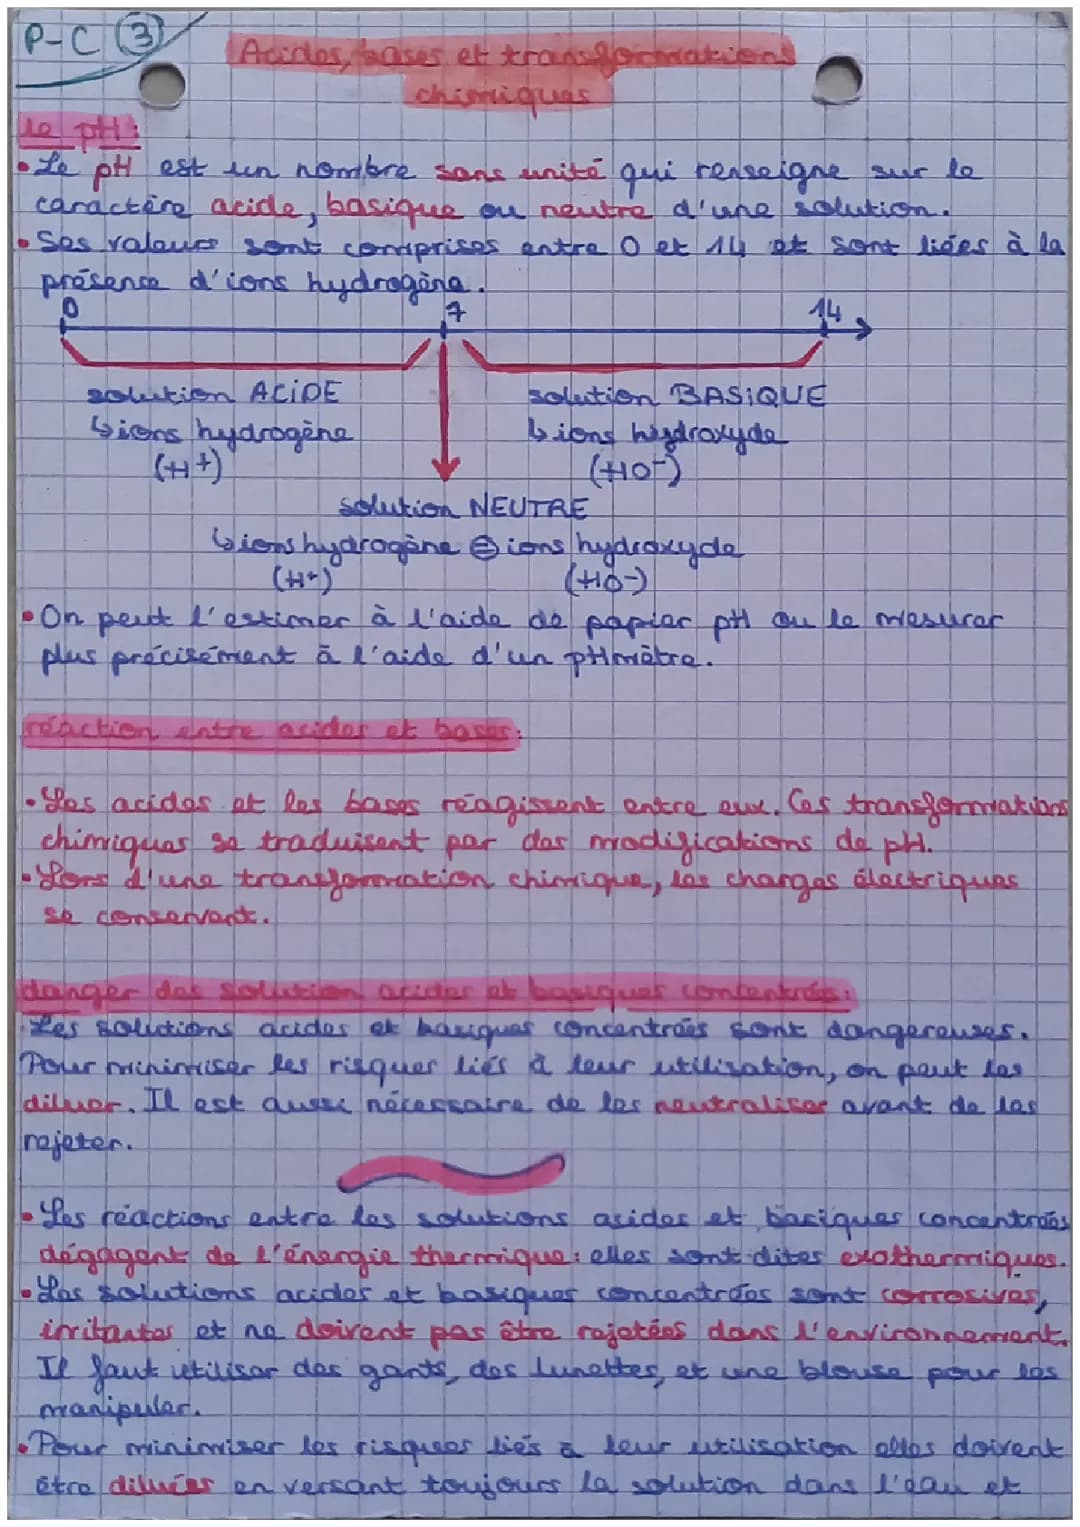 P-C 3
Acides, bases et transformations
chimiques
le pH:
• Le pH est un nombre sans unité qui renseigne sur le
caractère acide, basique ou neutre d'une solution.
• Ses valeurs sont comprises entre 0 et 14 et sont liées à la
présence d'ions hydrogène.
0 7 14
solution ACIDE solution BASIQUE
↳ ions hydrogène ↳ ions hydroxyde
(H+) (HO-)
solution NEUTRE
↳ ions hydrogène = ions hydroxyde
(H+) (HO-)
• On peut l'estimer à l'aide de papier pH ou le mesurer
plus précisément à l'aide d'un pHmètre.
réaction entre acides et bases:
• Les acides et les bases réagissent entre eux. Ces transformations
chimiques se traduisent par des modifications de pH.
• Lors d'une transformation chimique, les charges électriques
se conservent.
danger des solution acides et basiques concentrés:
Les solutions acides et basiques concentrées sont dangereuses.
Pour minimiser les risques liés à leur utilisation, on peut les
diluer. Il est aussi nécessaire de les neutraliser avant de les
rejeter.
• Les réactions entre les solutions asides et basiques concentrées
dégagent de l'énergie thermique: elles sont dites exothermiques.
• Les solutions acides et basiques concentrées sont corrosives,
irritantes et ne doivent pas être rejetées dans l'environnement.
Il faut utiliser des gants, des lunettes, et une blouse pour les
manipuler.
• Pour minimiser les risques liés à leur utilisation elles doivent
être diluées en versant toujours la solution dans l'eau et